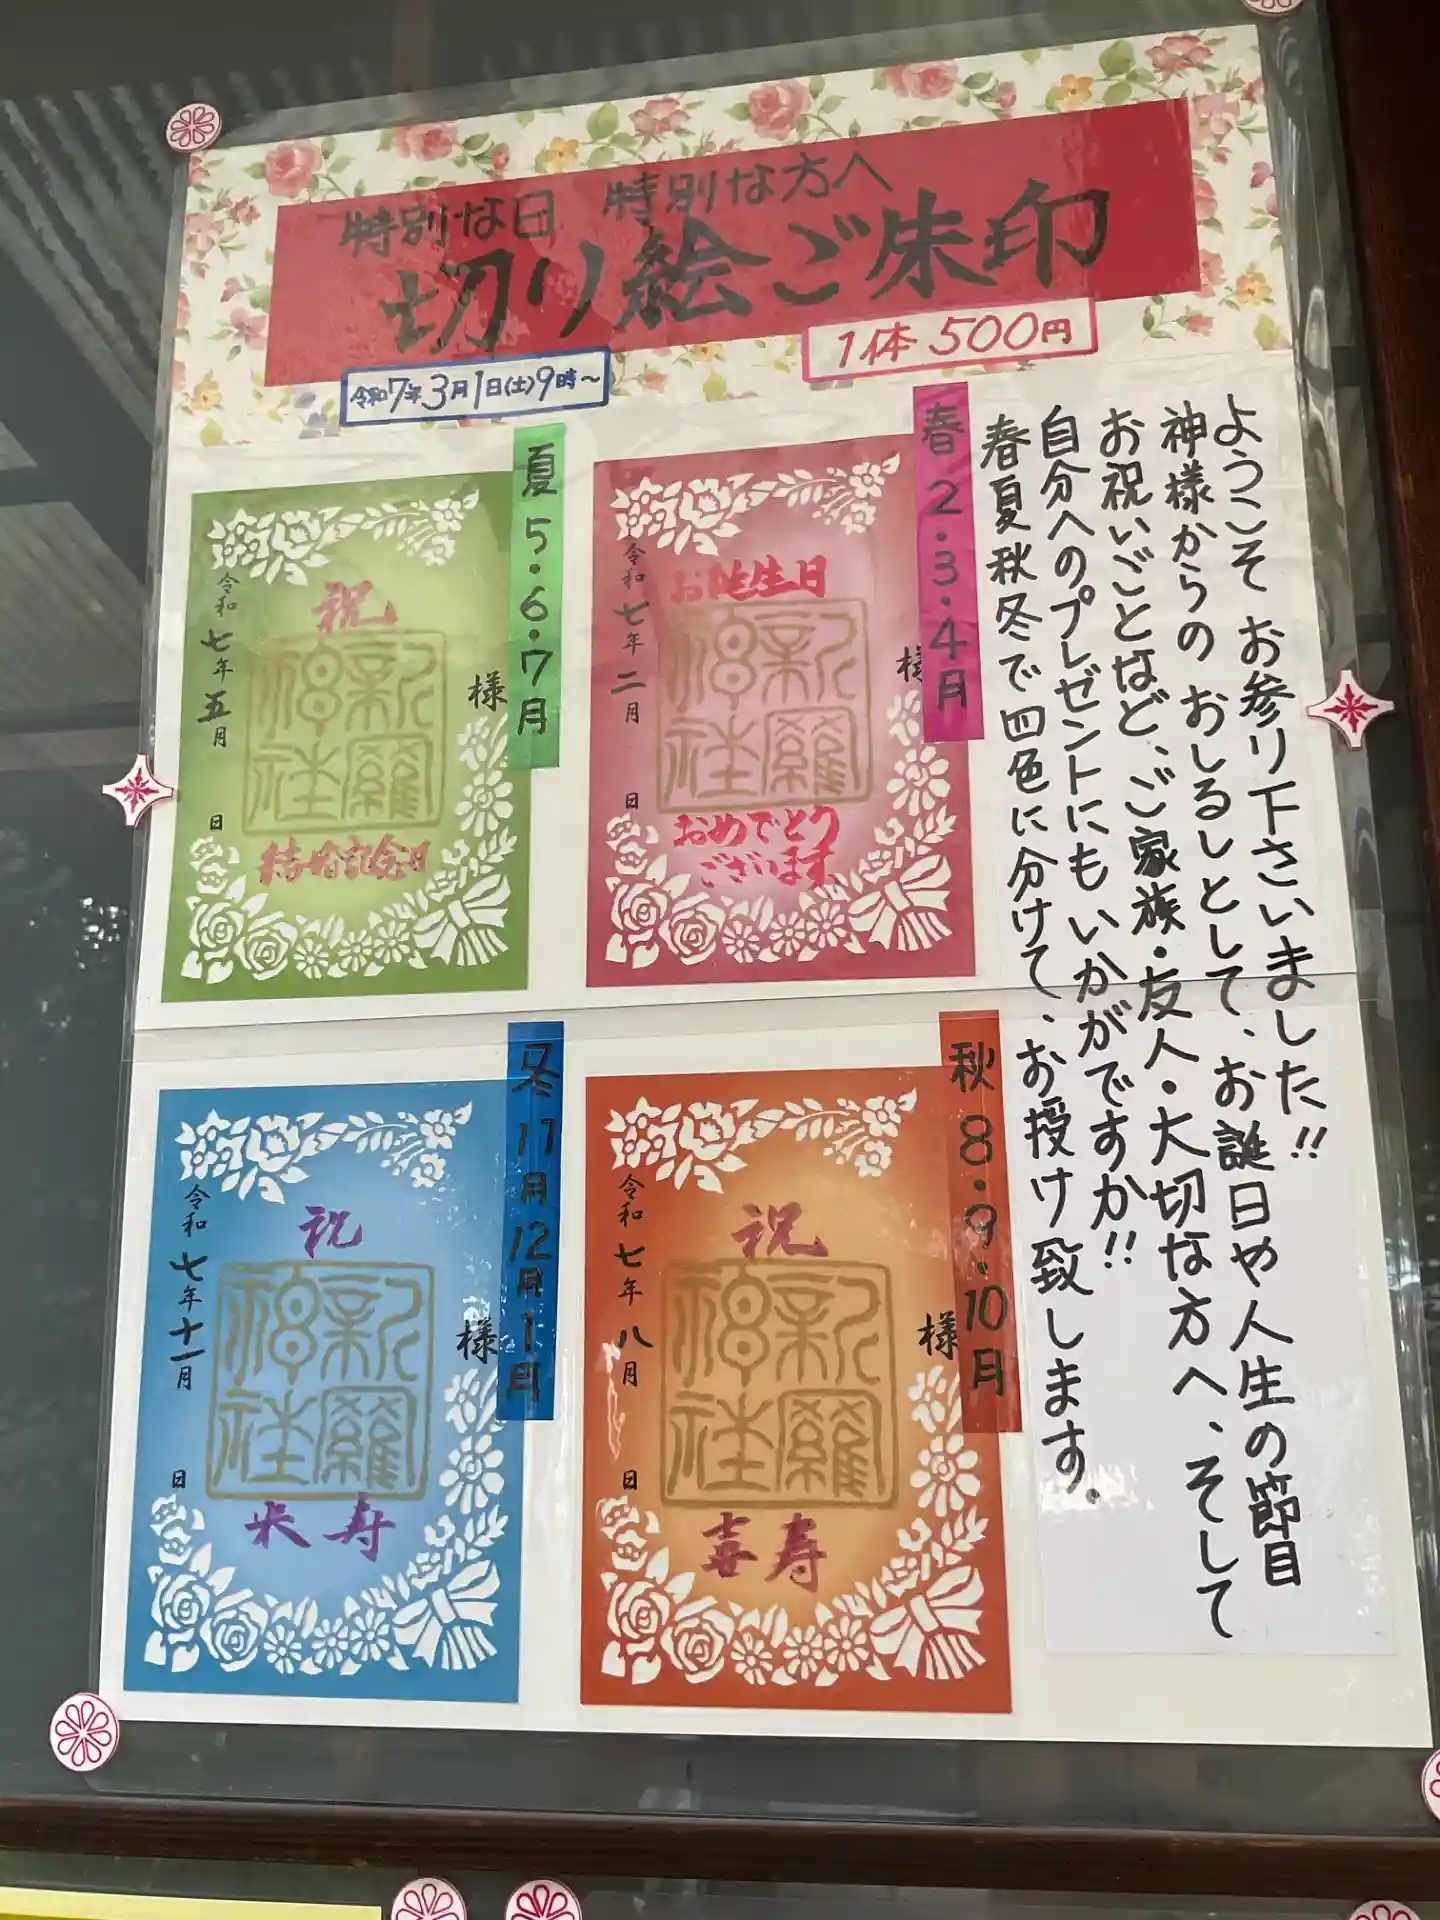 特別な日 特別な方へ
切り絵ご朱印
1体 500円
令和7年3月1日(土)9時～
ようこそ お参り下さいました!!
神様からの おしるしとして、お誕日や人生の節目
お祝いごとなど、ご家族・友人・大切な方へ、そして
自分へのプレゼントにも いかがですか!!
春夏秋冬で四色に分けて、お授け致します。
春 2・3・4月
お誕生日
新羅神社
おめでとう
ございます
令和七年二月 日
様
夏 5・6・7月
祝
新羅神社
結婚記念日
令和七年五月 日
様
秋 8・9・10月
祝
新羅神社
喜寿
令和七年八月 日
様
冬 11月12月1月
祝
新羅神社
米寿
令和七年十一月 日
様